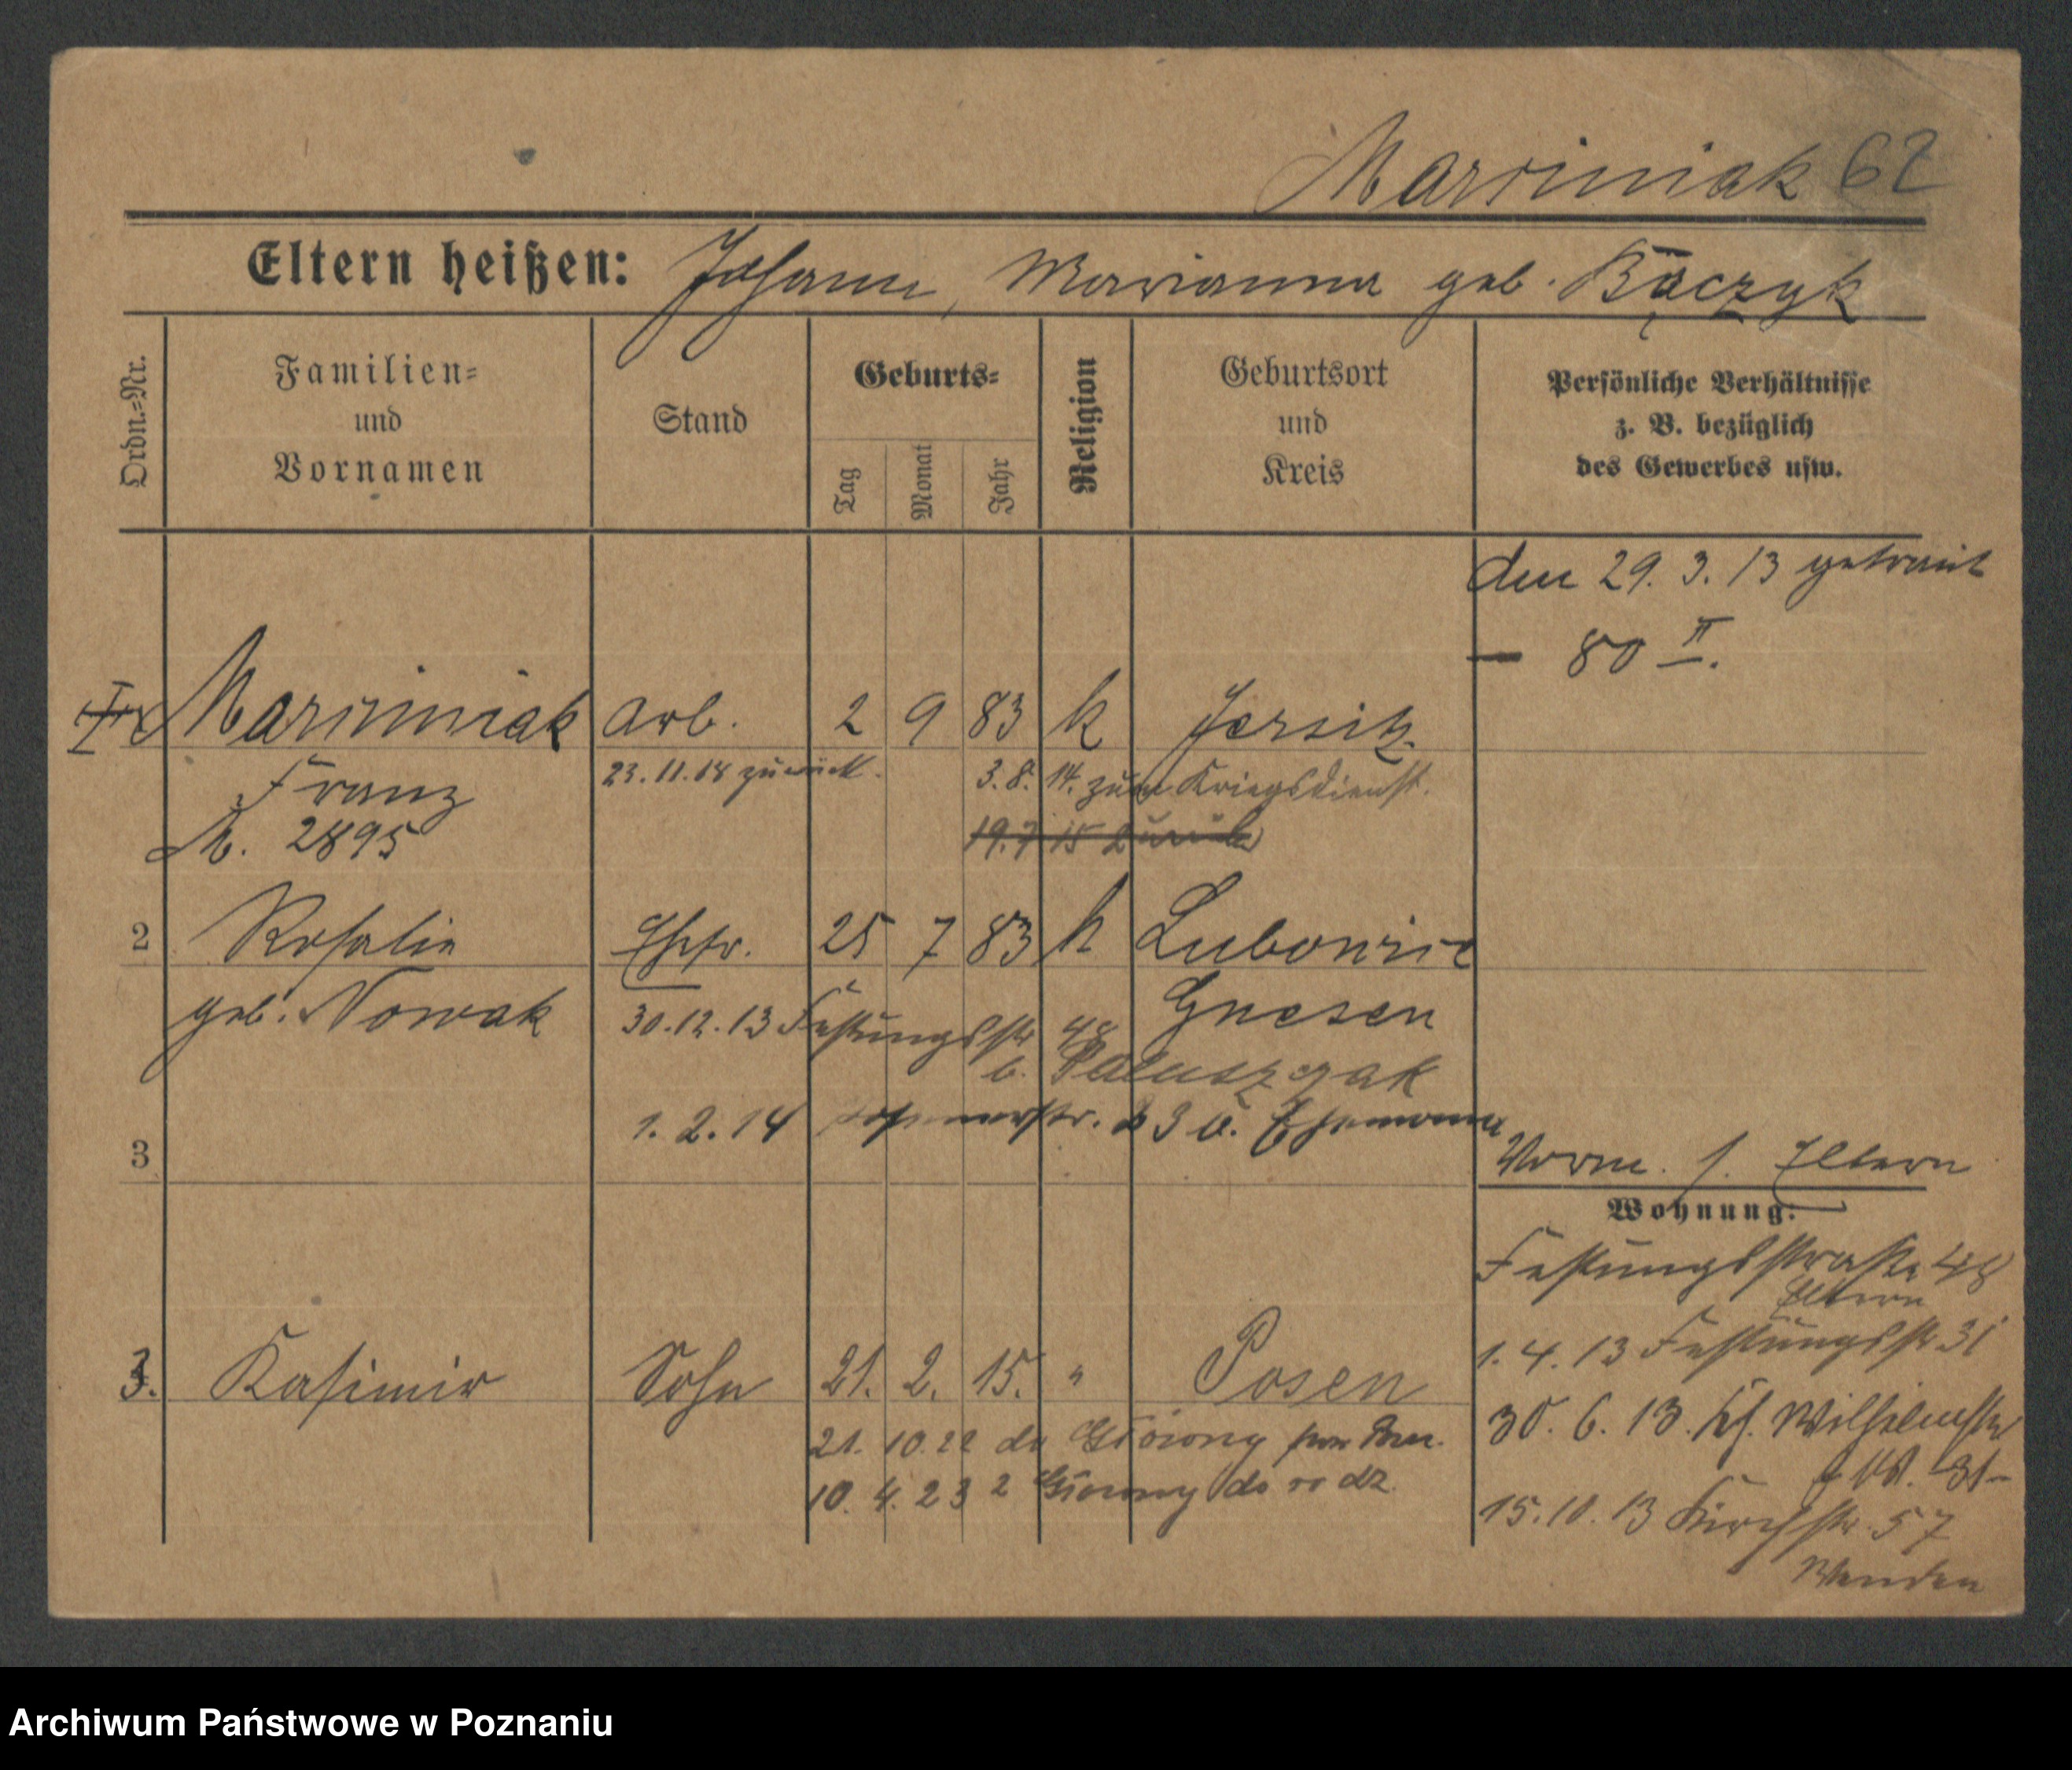 Marciniak 62
Eltern heißen: Johann, Marianna geb. Bączyk
Ordn.=Nr.
Familien=
und
Vornamen
Stand
Geburts=
Tag
Monat
Jahr
Religion
Geburtsort
und
Kreis
Persönliche Verhältnisse
z. B. bezüglich
des Gewerbes usw.
den 29. 3. 13 getraut
— 80 II.
Marciniak Arb. 2 9 83 k Jersitz
Franz 23. 11. 18 zurück. 3. 8. 14. zum Kriegsdienst.
A. 2895 19. 7 15 zurück
2 Rosalie Ehefr. 25 7 83 k
geb. Nowak Gnesen
30. 12. 13 Festungsstr 48
b.
1. 2. 14 23 b. Ehemann
3
Vorm. s. Eltern
Wohnung:
Festungsstraße 48
Eltern
1. 4. 13 Festungsstr 31
30. 6. 13. Wilhelmstr
31
15. 10. 13 Kirchstr. 57
Wenden
3. Kasimir Sohn 21. 2. 15. " Posen
21. 10. 22 do
10. 4. 23 z do
Archiwum Państwowe w Poznaniu